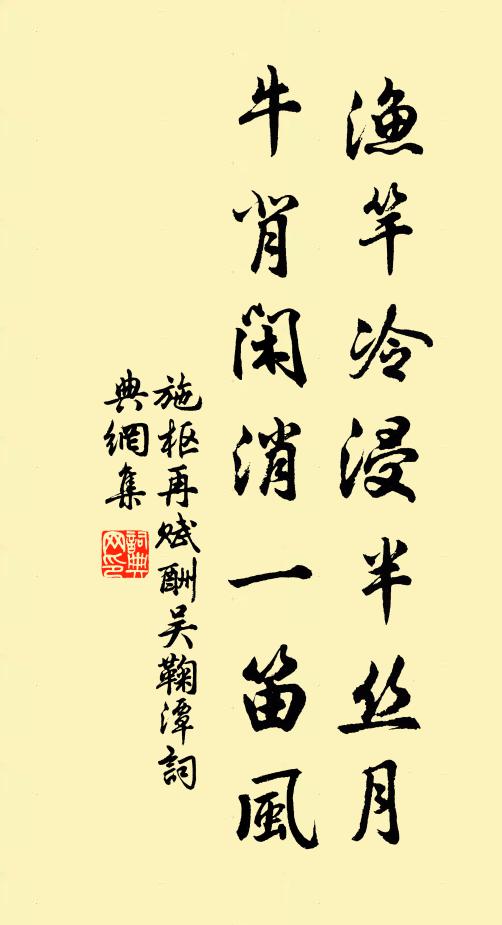 渔竿冷浸半丝月
牛背闲消一笛風
施枢再赋酬吴鞠潭詞
典網集
詞典
网印